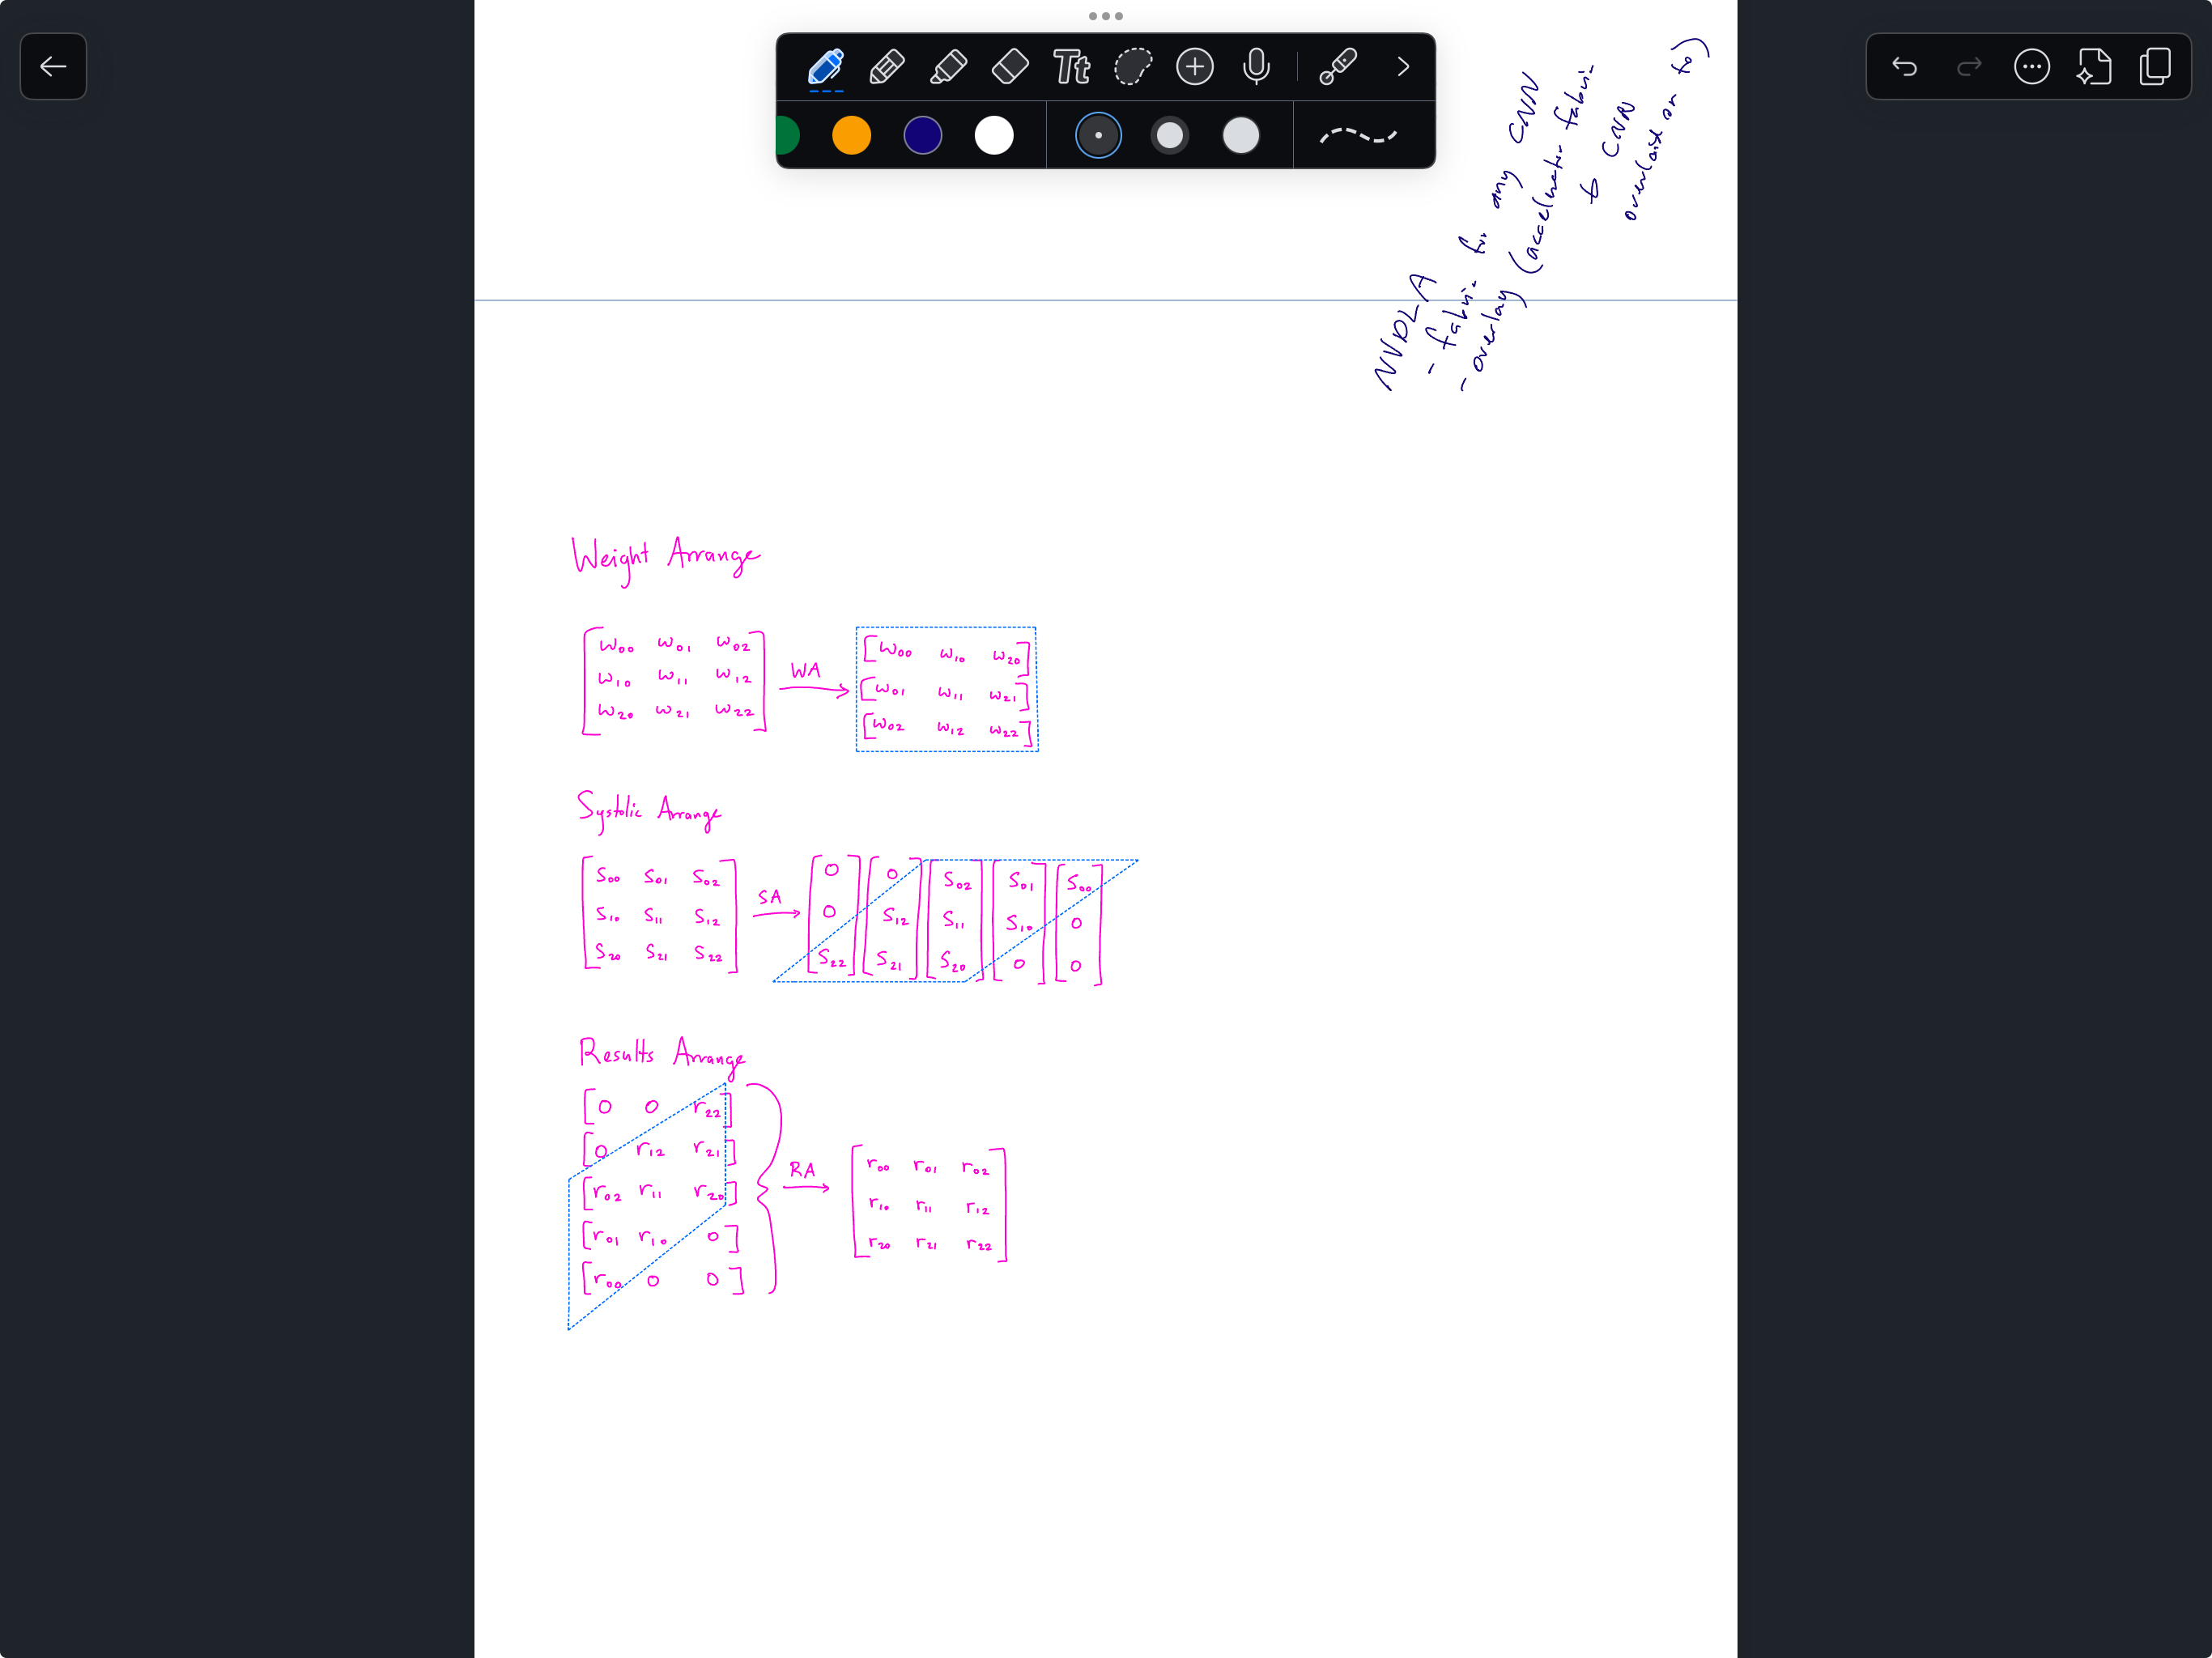 Tt
NVDLA
- fabric for any CNN
- overlay (accelerator fabric
to CNN
overlaid on to)
Weight Arrange
[w00 w01 w02
w10 w11 w12
w20 w21 w22]
WA
[w00 w10 w20]
[w01 w11 w21]
[w02 w12 w22]
Systolic Arrange
[s00 s01 s02
s10 s11 s12
s20 s21 s22]
SA
[0 0 s22] [0 s12 s21] [s02 s11 s20] [s01 s10 0] [s00 0 0]
Results Arrange
[0 0 r22]
[0 r12 r21]
[r02 r11 r20]
[r01 r10 0]
[r00 0 0]
RA
[r00 r01 r02
r10 r11 r12
r20 r21 r22]